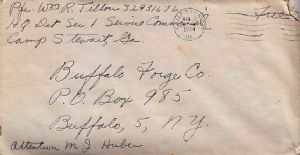 Pfc. Wm R. Tillou 32931676
Hq. Det Sec 1 Service Command
Camp Stewart, Ga.
Free
Buffalo Forge Co.
P.O. Box 985
Buffalo, 5, N.Y.
Attention M J Huber